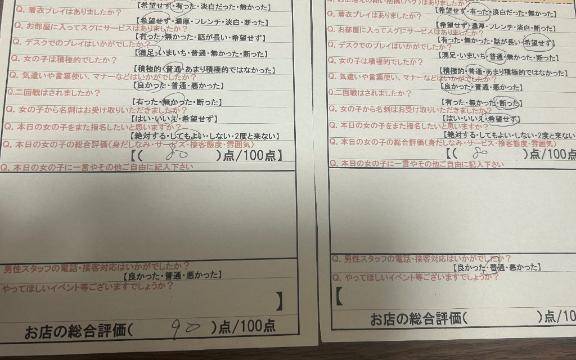 Q. 着衣プレイはありましたか?
【希望せず・有った・淡白だった・無かった】
【希望せず・濃厚・フレンチ・淡白・断った】
Q. お部屋に入ってスグにサービスはありましたか?
【有った・無かった・話が長い・希望せず】
Q. デスクでのプレイはいかがでしたか?
【満足・いまいち・普通・無かった・断った】
Q. 女の子は積極的でしたか?
【積極的・普通・あまり積極的ではなかった】
Q. 気遣いや言葉使い、マナーなどはいかがでしたか?
【良かった・普通・悪かった】
Q.二回戦はされましたか?
【有った・無かった・断った】
Q. 女の子から名刺はお受け取りいただきましたか?
【はい・いいえ・希望せず】
Q. 本日の女の子をまた指名したいと思いますか?
【絶対する・してもよい・しない・2度と来ない】
Q. 本日の女の子の総合評価(身だしなみ・サービス・接客態度・雰囲気)
【( 80 )点/100点】
Q. 本日の女の子に一言やその他ご自由に記入下さい
男性スタッフの電話・接客対応はいかがでしたか?
【良かった・普通・悪かった】
やってほしいイベント等ございますでしょうか?
】
お店の総合評価( 90 )点/100点
【希望せず・有った・淡白だった・無かった】
Q. 着衣プレイはありましたか?
【希望せず・濃厚・フレンチ・淡白・断った】
【有った・無かった・話が長い・希望せず】
Q. デスクでのプレイはいかがでしたか?
【満足・いまいち・普通・無かった・断った】
Q. 女の子は積極的でしたか?
【積極的・普通・あまり積極的ではなかった】
Q. 気遣いや言葉使い、マナーなどはいかがでしたか?
【良かった・普通・悪かった】
Q.二回戦はされましたか?
【有った・無かった・断った】
Q. 女の子から名刺はお受け取りいただきましたか?
【はい・いいえ・希望せず】
Q. 本日の女の子をまた指名したいと思いますか?
【絶対する・してもよい・しない・2度と来ない】
Q. 本日の女の子の総合評価(身だしなみ・サービス・接客態度・雰囲気)
【( 80 )点/100点】
Q. 本日の女の子に一言やその他ご自由に記入下さい
Q. 男性スタッフの電話・接客対応はいかがでしたか?
【良かった・普通・悪かった】
Q. やってほしいイベント等ございますでしょうか?
【
お店の総合評価( )点/100点